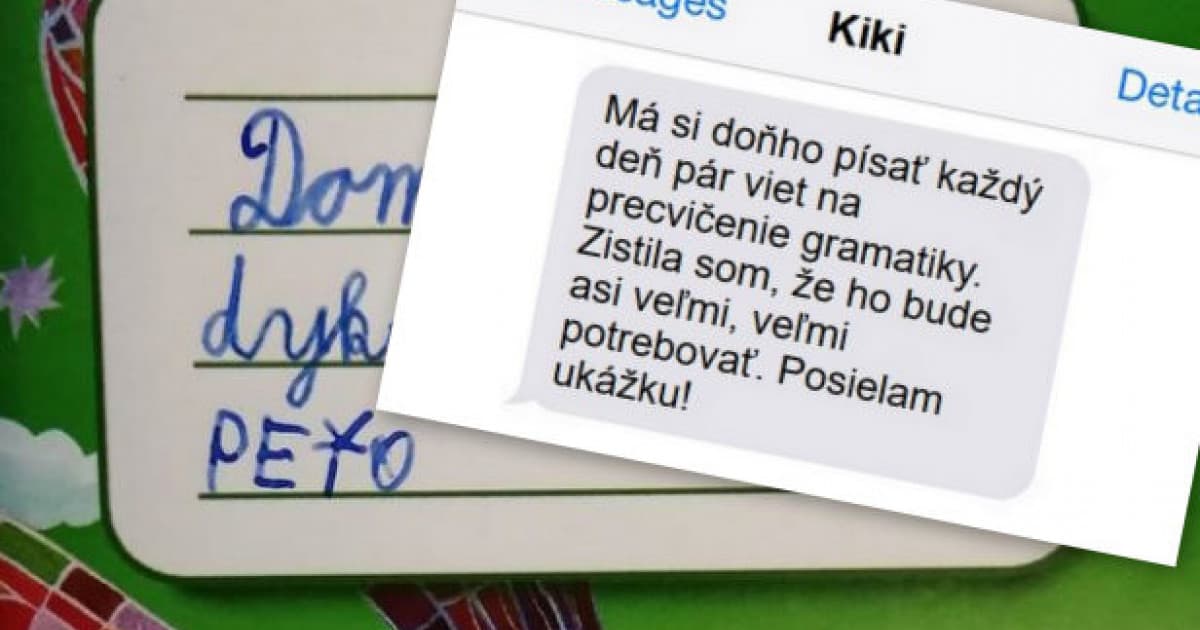 sages
Kiki
Deta
Má si doňho písať každý
deň pár viet na
precvičenie gramatiky.
Zistila som, že ho bude
asi veľmi, veľmi
potrebovať. Posielam
ukážku!
Dom
dyk
PEŤO